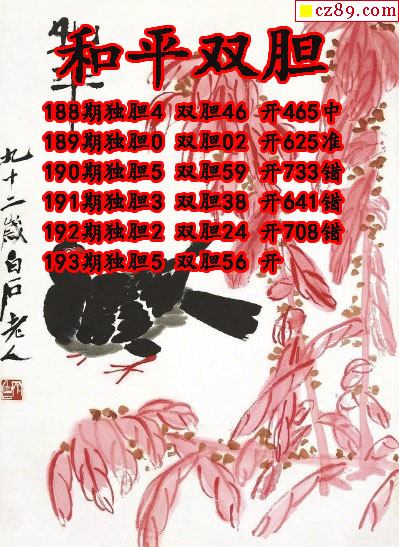 cz89.com
和平双胆
188期独胆4 双胆46 开465中
189期独胆0 双胆02 开625准
190期独胆5 双胆59 开733错
191期独胆3 双胆38 开641错
192期独胆2 双胆24 开708错
193期独胆5 双胆56 开
九十二岁白石老人